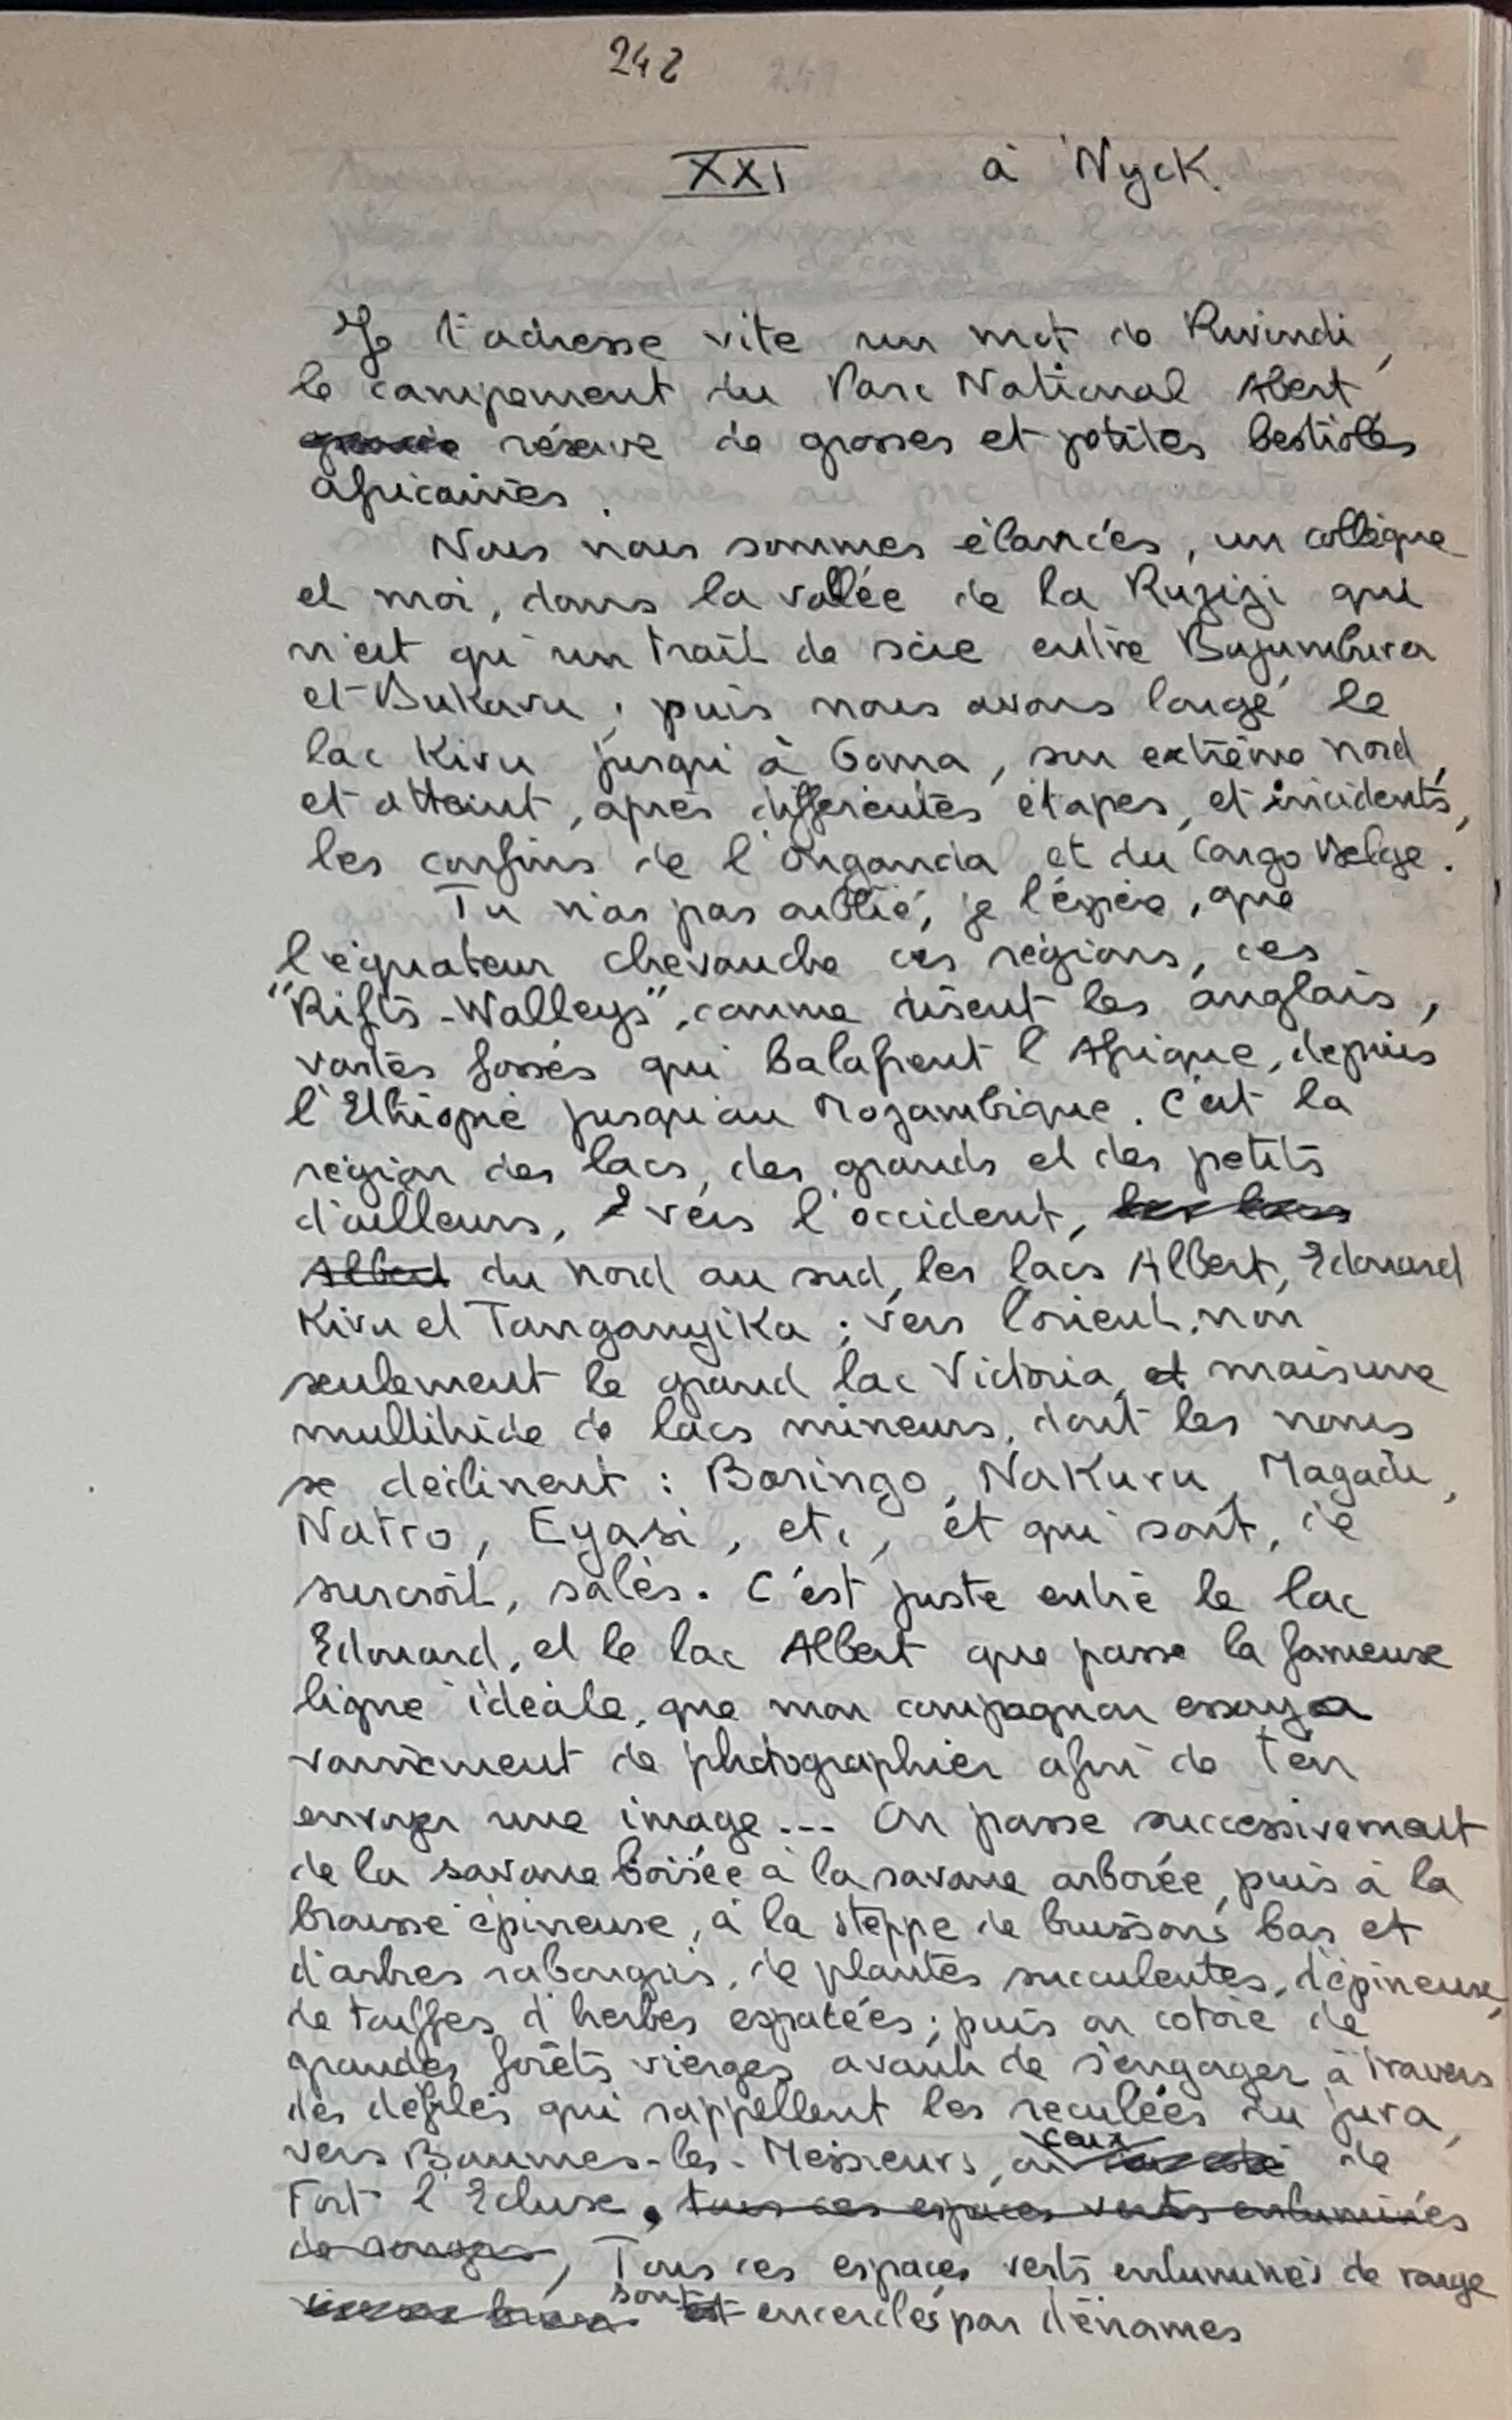 242
XXI à Nyck.
Je t'adresse vite un mot de Rwindi,
le campement du Parc National Abert
réserve de grosses et petites bestioles
africaines.
Nous nous sommes élancés, un collègue
et moi, dans la vallée de la Ruzizi qui
n'est qu'un trait de scie entre Bujumbura
et Bukavu ; puis nous avons longé le
lac Kivu jusqu'à Goma, son extrême nord,
et atteint, après différentes étapes, et incidents,
les confins de l'Ouganda et du Congo Belge.
Tu n'as pas oublié, je l'espère, que
l'équateur chevauche ces régions, ces
"Rifts-Walleys", comme disent les anglais,
vastes fossés qui balafrent l'Afrique, depuis
l'Ethiopie jusqu'au Mozambique. C'est la
région des lacs, des grands et des petits
d'ailleurs, vers l'occident, les lacs
Albert du nord au sud, les lacs Albert, Edouard
Kivu et Tanganyika ; vers l'orient, non
seulement le grand lac Victoria, et mais une
multitude de lacs mineurs, dont les noms
se déclinent : Baringo, Nakuru, Magadi,
Natro, Eyasi, etc, et qui sont, de
surcroît, salés. C'est juste entre le lac
Edouard, et le lac Albert que passe la fameuse
ligne idéale, que mon compagnon essaya
vainement de photographier afin de t'en
envoyer une image... On passe successivement
de la savane boisée à la savane arborée, puis à la
brousse épineuse, à la steppe de buissons bas et
d'arbres rabougris, de plantes succulentes, d'épineux,
de touffes d'herbes espacées ; puis on cotoie de
grandes forêts vierges avant de s'engager à travers
des défilés qui rappellent les reculées du jura,
vers Baumes-les-Messieurs, ou ceux de
Fort l'Ecluse, tous ces espaces verts enluminés
de rouge, Tous ces espaces verts enluminés de rouge
sont est encerclés par d'énormes